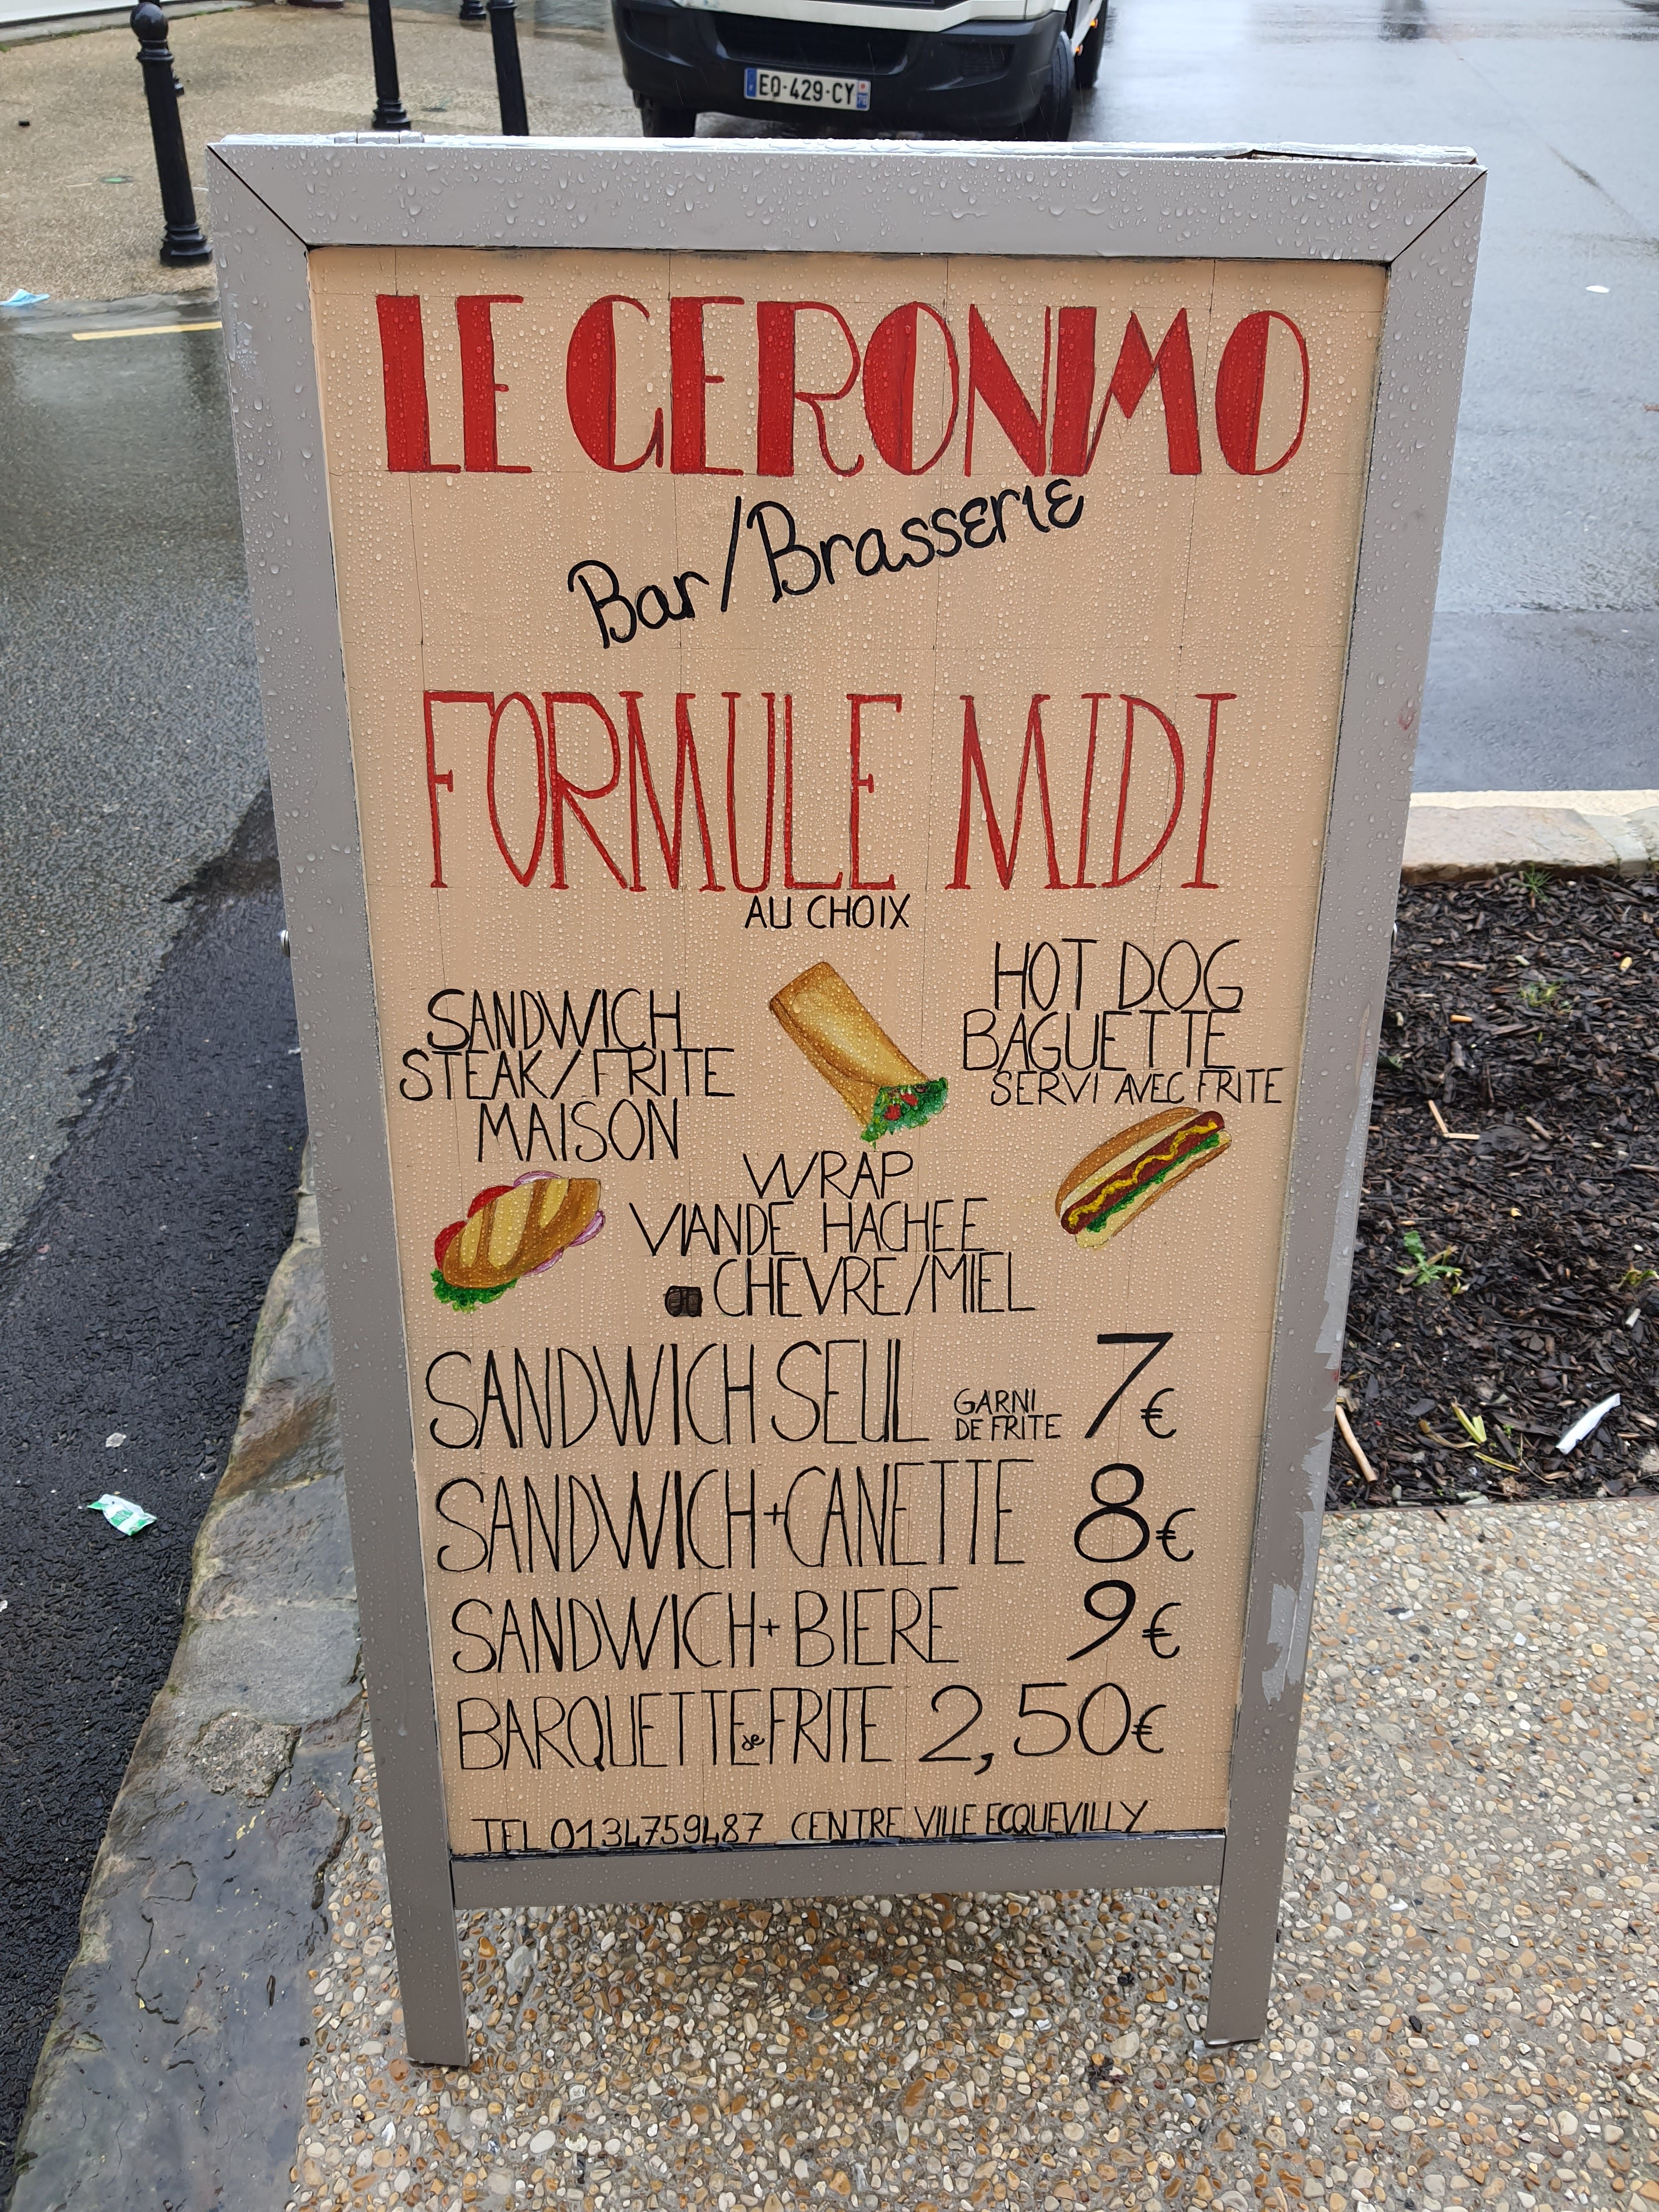 EQ-429-CY
LE GERONIMO
Bar/Brasserie
FORMULE MIDI
AU CHOIX
SANDWICH
STEAK/FRITE
MAISON
HOT DOG
BAGUETTE
SERVI AVEC FRITE
WRAP
VIANDE HACHEE
CHEVRE/MIEL
SANDWICH SEUL GARNI DE FRITE 7€
SANDWICH+CANETTE 8€
SANDWICH+BIERE 9€
BARQUETTE de FRITE 2,50€
TEL 0134759487 CENTRE VILLE ECQUEVILLY